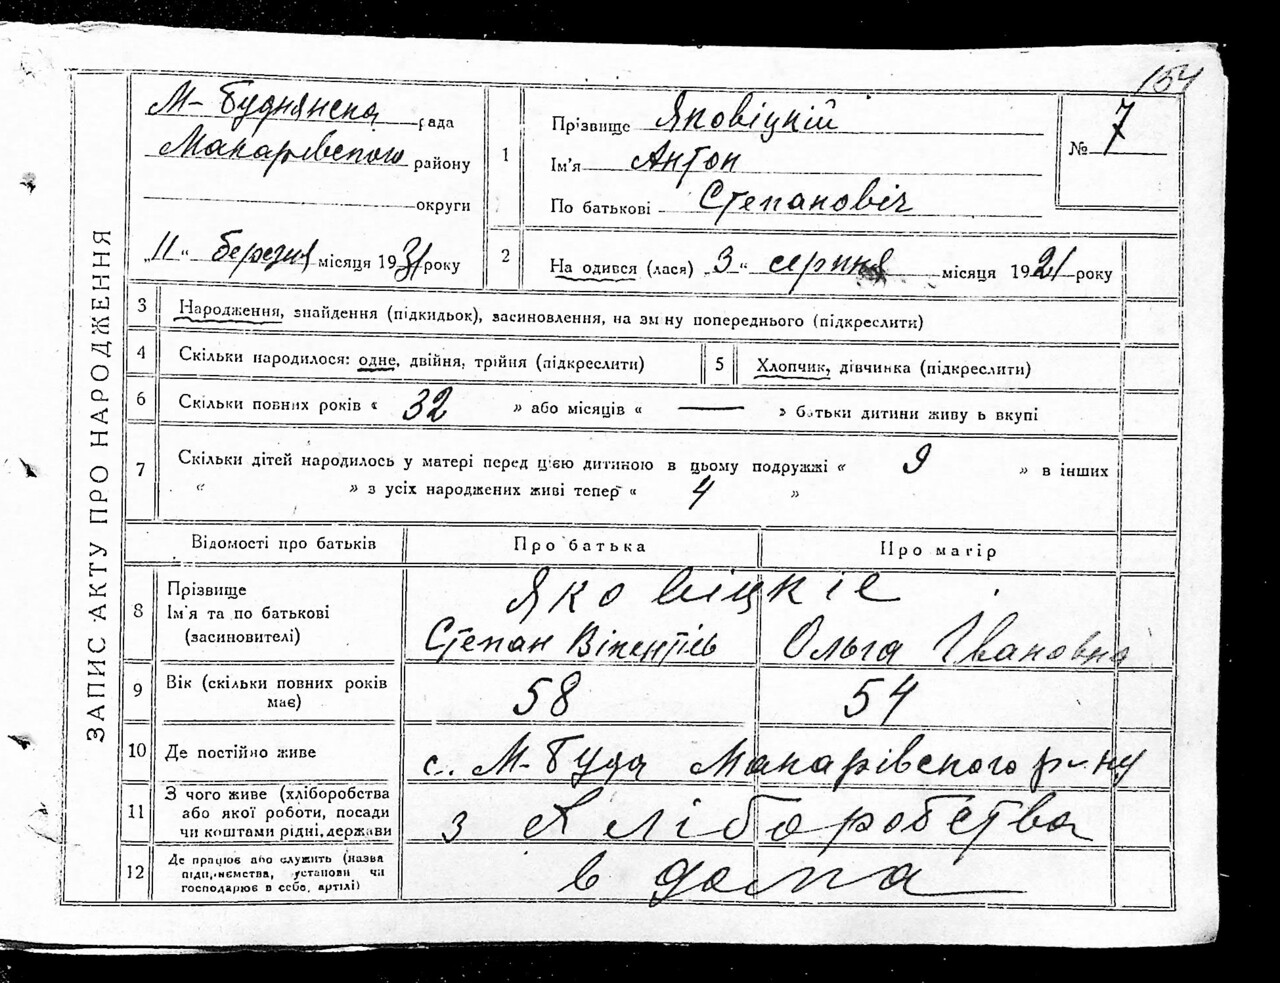 154
М-Буднянска рада
Макарівского району
округи
„11“ березня місяця 1931 року
1
Прізвище Яковіцкій
Ім'я Антон
По батькові Степановіч
№ 7
2
На одився (лася) „3“ серпня місяця 1921 року
ЗАПИС АКТУ ПРО НАРОДЖЕННЯ
3 Народження, знайдення (підкидьок), засиновлення, на зм ну попереднього (підкреслити)
4 Скільки народилося: одне, двійня, трійня (підкреслити)
5 Хлопчик, дівчинка (підкреслити)
6 Скільки повних років « 32 » або місяців « — » батьки дитини живу ь вкупі
7 Скільки дітей народилось у матері перед цією дитиною в цьому подружжі « 9 » в інших
“ » з усіх народжених живі тепер “ 4 »
Відомості про батьків Про батька Про матір
8 Прізвище
Ім'я та по батькові
(засиновителі)
Яковіцкіе
Степан Вікентієв Ольга Івановна
9 Вік (скільки повних років
має)
58 54
10 Де постійно живе с. М-Буда Макарівского р-ну
11 З чого живе (хліборобства
або якої роботи, посади
чи коштами рідні, держави
з Хліборобства
12 Де працює або служить (назва
підприємства, установи чи
господарює в себе, артілі)
в дома